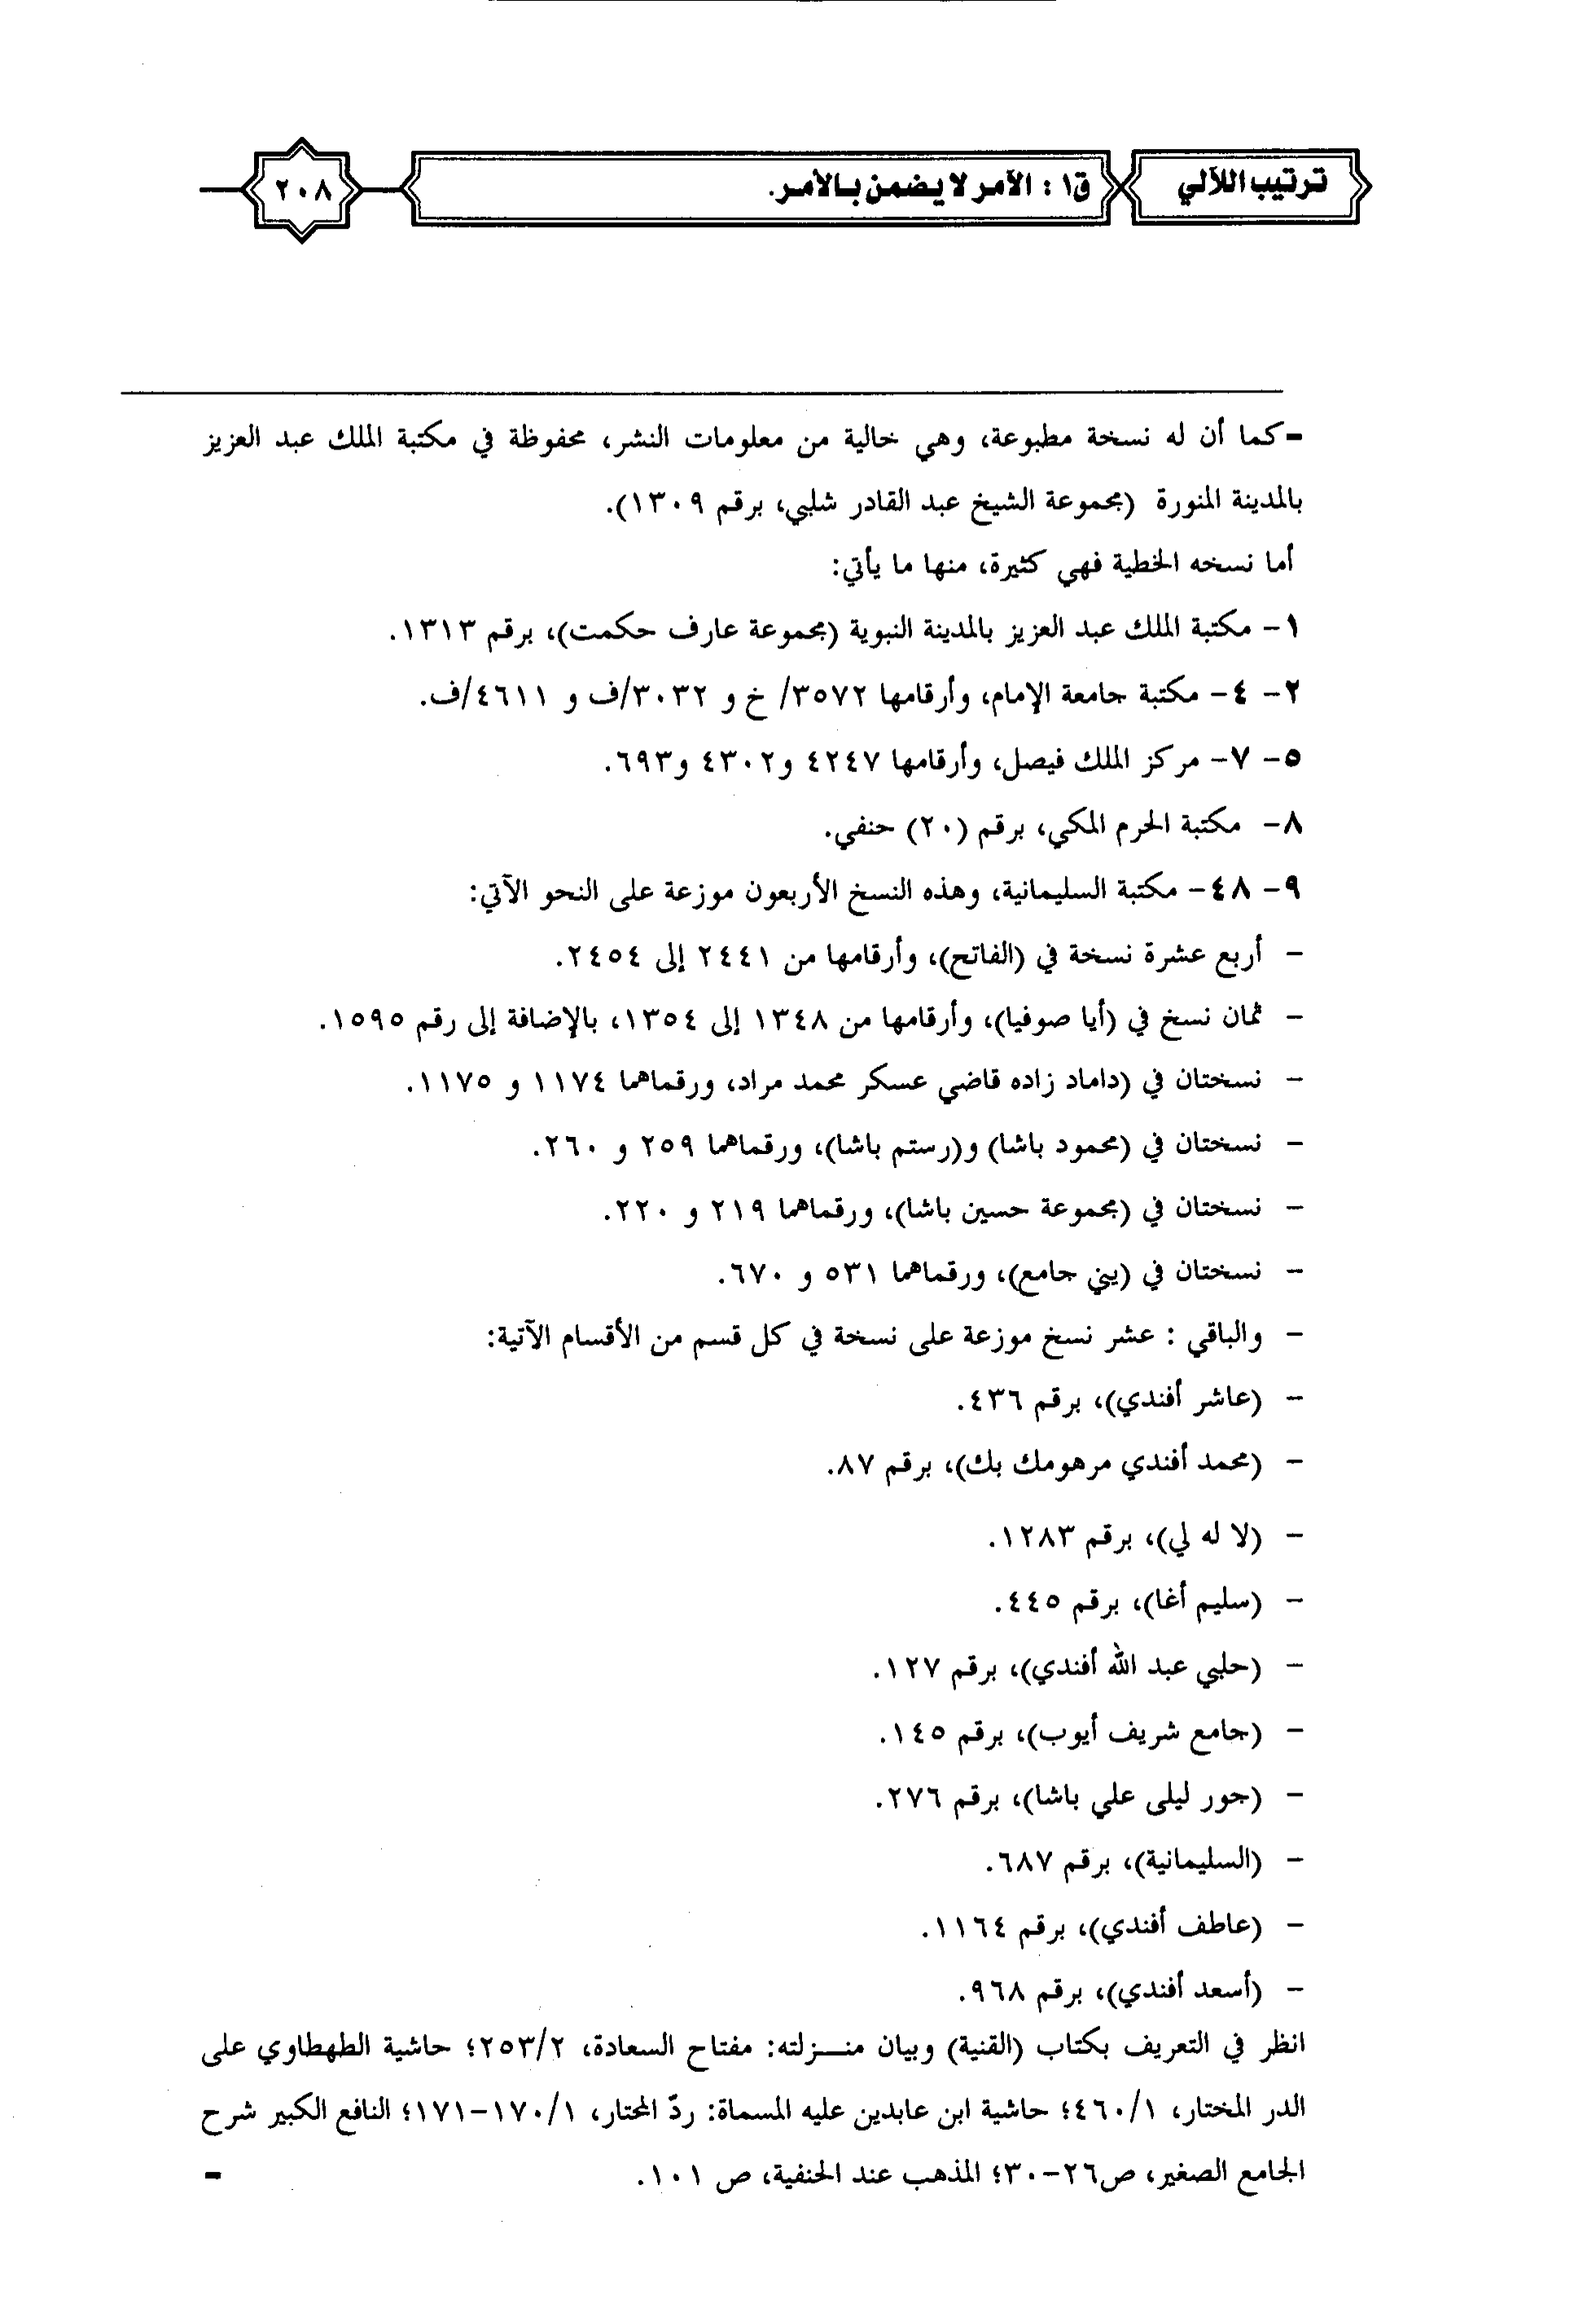 ترتيب اللآلي
ق١ : الآمر لا يضمن بالأمر.
٢٠٨
=كما أن له نسخة مطبوعة، وهي خالية من معلومات النشر، محفوظة في مكتبة الملك عبد العزيز
بالمدينة المنورة (مجموعة الشيخ عبد القادر شلبي، برقم ١٣٠٩).
أما نسخه الخطية فهي كثيرة، منها ما يأتي:
١- مكتبة الملك عبد العزيز بالمدينة النبوية (مجموعة عارف حكمت)، برقم ١٣١٣.
٢- ٤- مكتبة جامعة الإمام، وأرقامها ٣٥٧٢/ خ و ٣٠٣٢/ف و ٤٦١١/ف.
٥- ٧- مركز الملك فيصل، وأرقامها ٤٢٤٧ و٤٣٠٢ و٦٩٣.
٨- مكتبة الحرم المكي، برقم (٢٠) حنفي.
٩- ٤٨- مكتبة السليمانية، وهذه النسخ الأربعون موزعة على النحو الآتي:
- أربع عشرة نسخة في (الفاتح)، وأرقامها من ٢٤٤١ إلى ٢٤٥٤.
- ثمان نسخ في (أيا صوفيا)، وأرقامها من ١٣٤٨ إلى ١٣٥٤، بالإضافة إلى رقم ١٥٩٥.
- نسختان في (داماد زاده قاضي عسكر محمد مراد، ورقماهما ١١٧٤ و ١١٧٥.
- نسختان في (محمود باشا) و(رستم باشا)، ورقماهما ٢٥٩ و ٢٦٠.
- نسختان في (مجموعة حسين باشا)، ورقماهما ٢١٩ و ٢٢٠.
- نسختان في (يني جامع)، ورقماهما ٥٣١ و ٦٧٠.
- والباقي : عشر نسخ موزعة على نسخة في كل قسم من الأقسام الآتية:
- (عاشر أفندي)، برقم ٤٣٦.
- (محمد أفندي مرهومك بك)، برقم ٨٧.
- (لا له لي)، برقم ١٢٨٣.
- (سليم أغا)، برقم ٤٤٥.
- (حلبي عبد الله أفندي)، برقم ١٢٧.
- (جامع شريف أيوب)، برقم ١٤٥.
- (جور ليلى علي باشا)، برقم ٢٧٦.
- (السليمانية)، برقم ٦٨٧.
- (عاطف أفندي)، برقم ١١٦٤.
- (أسعد أفندي)، برقم ٩٦٨.
انظر في التعريف بكتاب (القنية) وبيان منـــزلته: مفتاح السعادة، ٢٥٣/٢؛ حاشية الطهطاوي على
الدر المختار، ٤٦٠/١؛ حاشية ابن عابدين عليه المسماة: ردّ المحتار، ١٧٠/١-١٧١؛ النافع الكبير شرح
الجامع الصغير، ص٢٦-٣٠؛ المذهب عند الحنفية، ص ١٠١. =